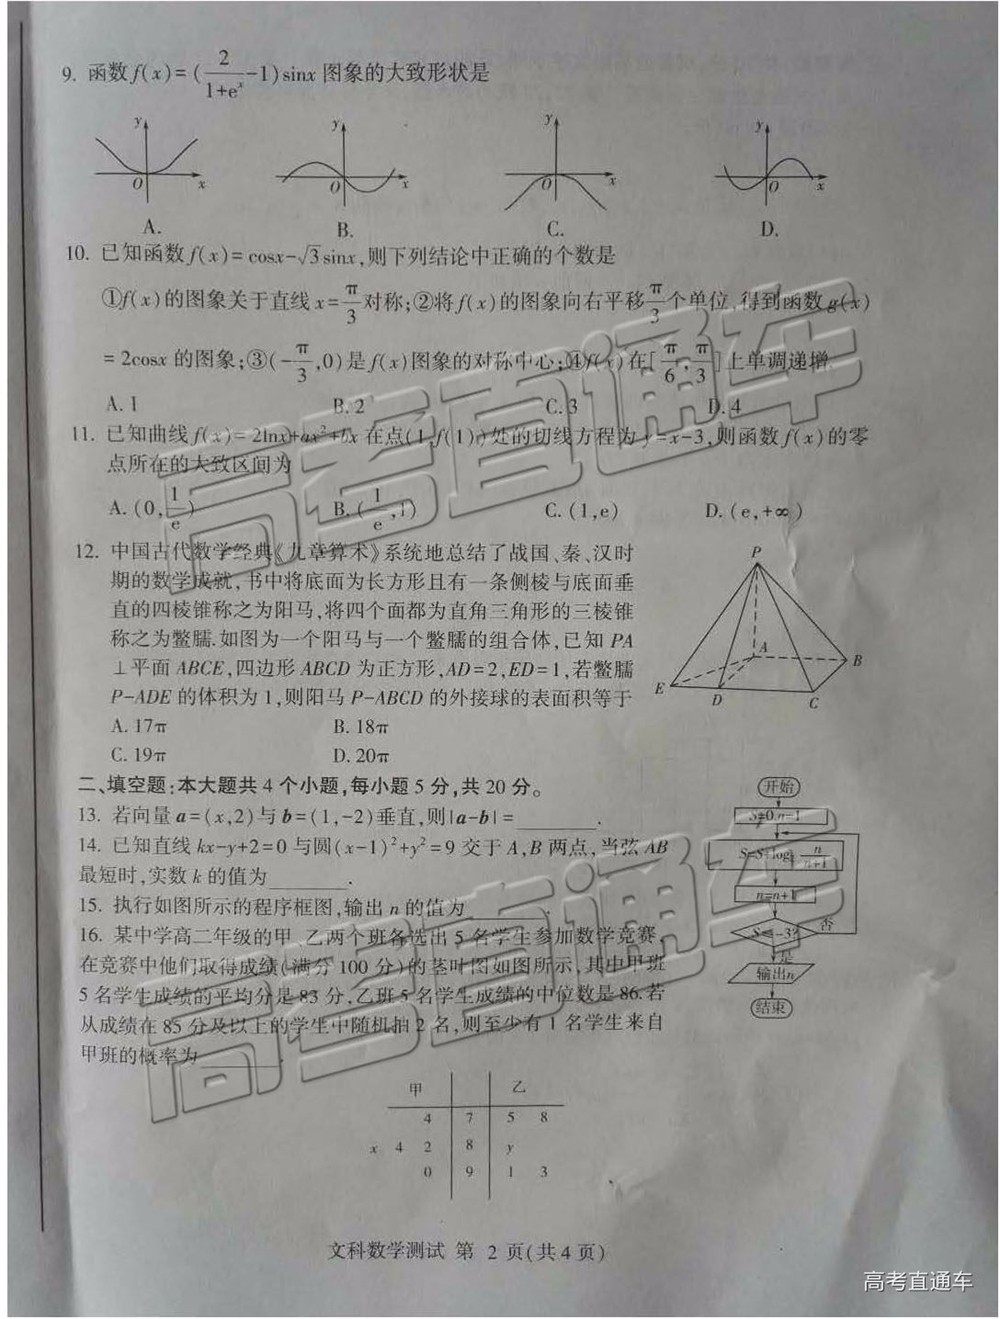 9. 函数f(x)=(2/(1+eˣ)-1)sinx 图象的大致形状是
y O x y O x y O x y O x
A. B. C. D.
10. 已知函数f(x)=cosx-√3sinx,则下列结论中正确的个数是
①f(x)的图象关于直线x=π/3对称;②将f(x)的图象向右平移π/3个单位,得到函数g(x)
=2cosx的图象;③(-π/3,0)是f(x)图象的对称中心;④f(x)在[π/6,π/3]上单调递增.
A. 1 B. 2 C. 3 D. 4
11. 已知曲线f(x)=2lnx+ax²+bx在点(1,f(1))处的切线方程为y=x-3,则函数f(x)的零
点所在的大致区间为
A. (0,1/e) B. (1/e,1) C. (1,e) D. (e,+∞)
12. 中国古代数学经典《九章算术》系统地总结了战国、秦、汉时
期的数学成就,书中将底面为长方形且有一条侧棱与底面垂
直的四棱锥称之为阳马,将四个面都为直角三角形的三棱锥
称之为鳖臑.如图为一个阳马与一个鳖臑的组合体,已知PA
⊥平面ABCE,四边形ABCD为正方形,AD=2,ED=1,若鳖臑
P-ADE的体积为1,则阳马P-ABCD的外接球的表面积等于
A. 17π B. 18π
C. 19π D. 20π
P
A
B
E
D
C
二、填空题:本大题共4个小题,每小题5分,共20分。
13. 若向量a=(x,2)与b=(1,-2)垂直,则|a-b|=________.
14. 已知直线kx-y+2=0与圆(x-1)²+y²=9交于A,B两点,当弦AB
最短时,实数k的值为________.
15. 执行如图所示的程序框图,输出n的值为________.
16. 某中学高二年级的甲、乙两个班各选出5名学生参加数学竞赛,
在竞赛中他们取得成绩(满分100分)的茎叶图如图所示,其中甲班
5名学生成绩的平均分是83分,乙班5名学生成绩的中位数是86.若
从成绩在85分及以上的学生中随机抽2名,则至少有1名学生来自
甲班的概率为________.
开始
S=0,n=1
n/(n+1)
n=n+1
S≤-3?
否
是
输出n
结束
甲 乙
4 7 5 8
x 4 2 8 y
0 9 1 3
文科数学测试 第 2 页(共4页)
高考直通车
高考直通车
高考直通车